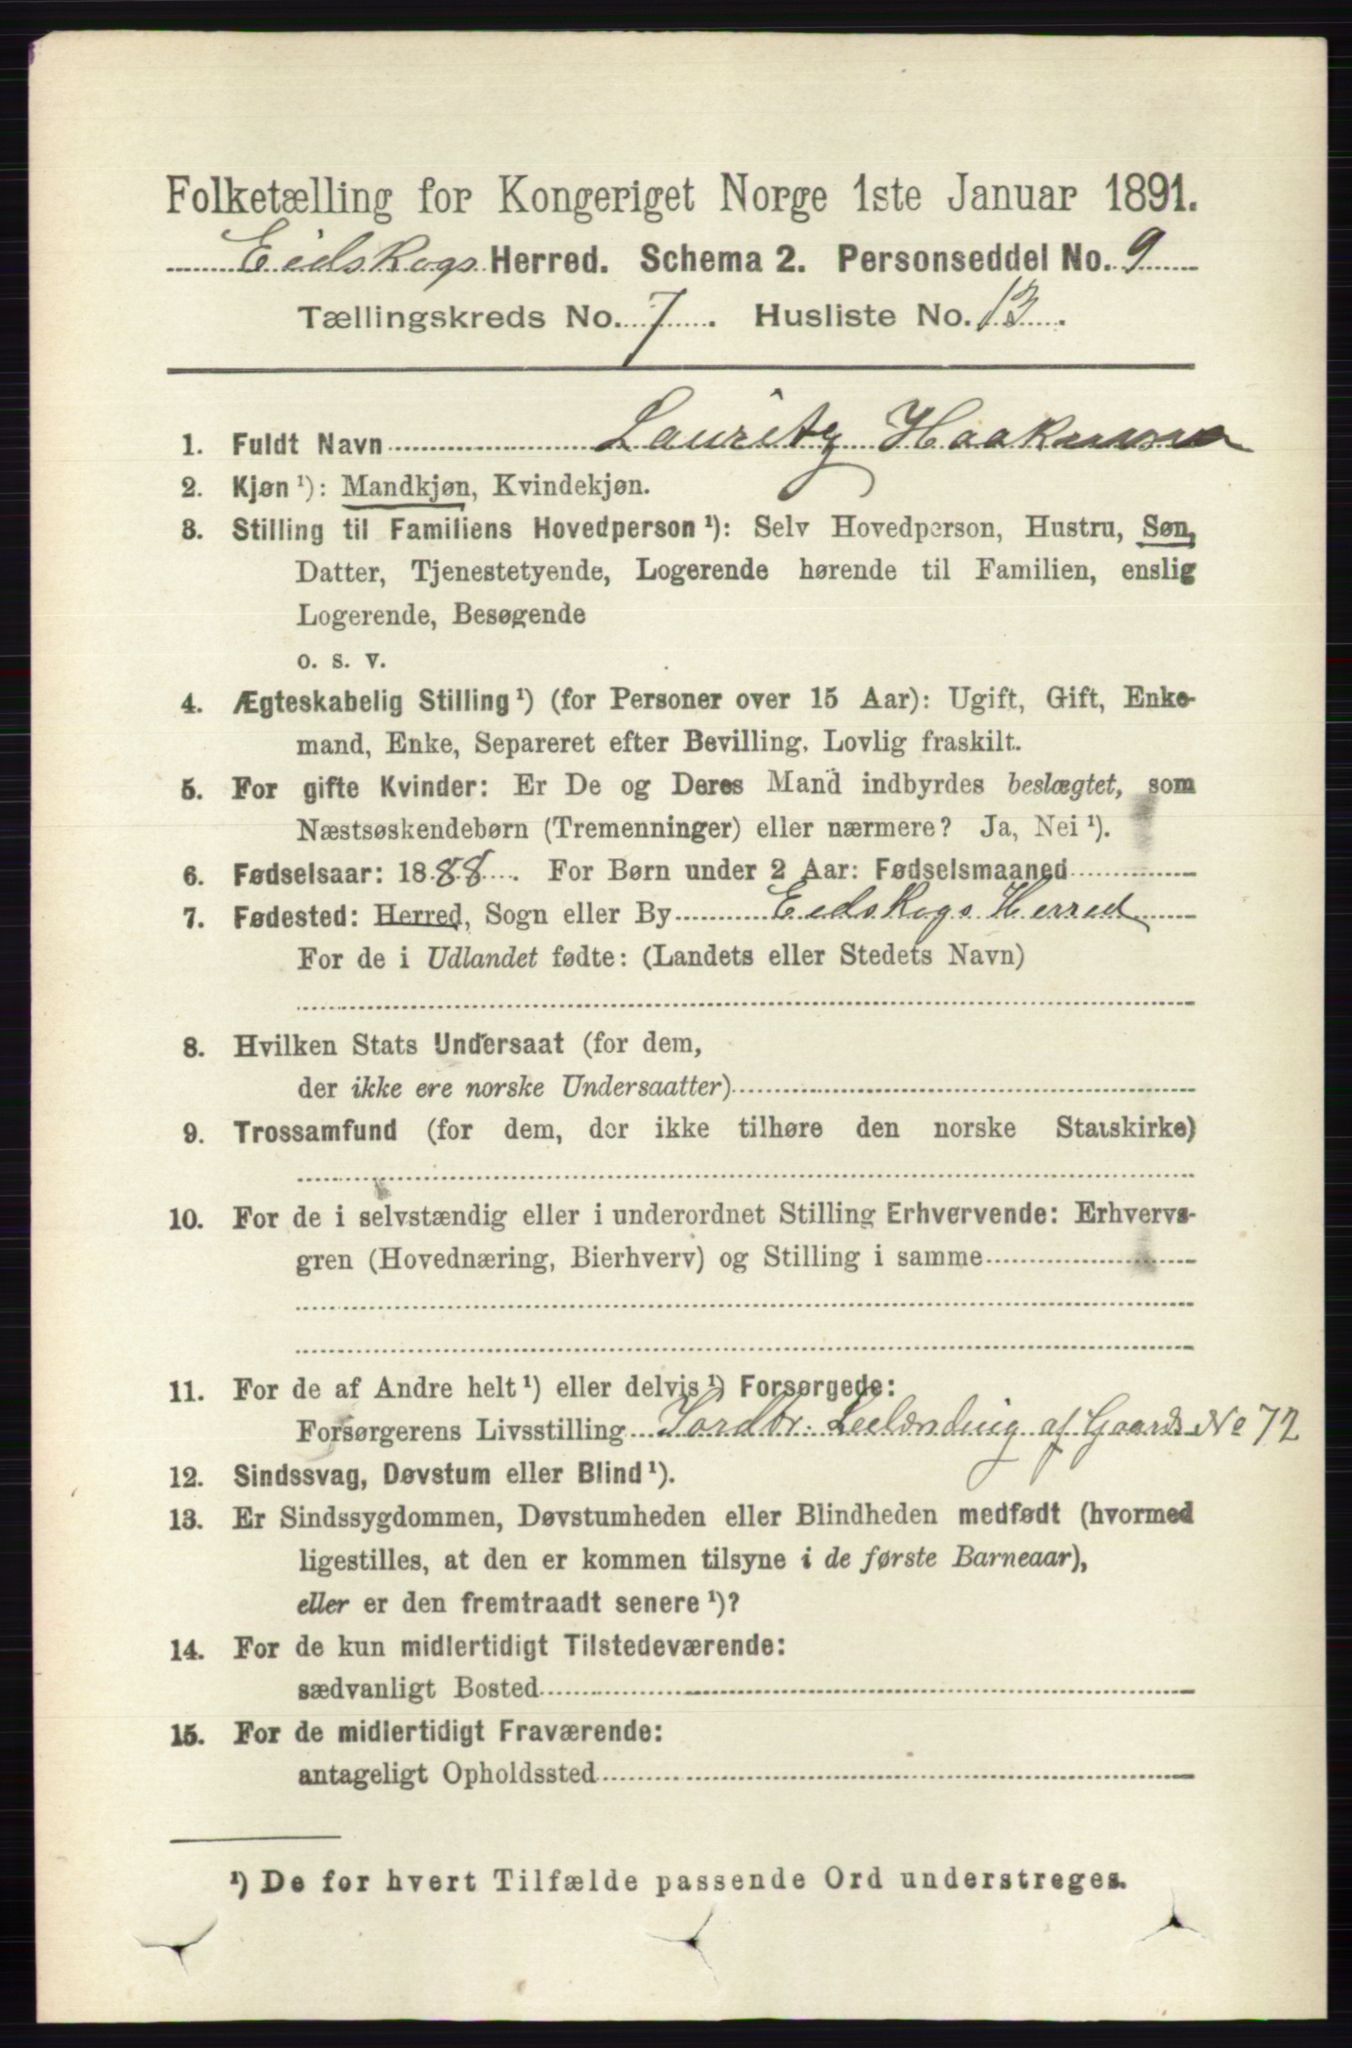 Folketælling for Kongeriget Norge 1ste Januar 1891.
Eidskogs Herred. Schema 2. Personseddel No. 9
Tællingskreds No. 7. Husliste No. 13.
1. Fuldt Navn Lauritz Haakensen
2. Kjøn ¹): Mandkjøn, Kvindekjøn.
3. Stilling til Familiens Hovedperson ¹): Selv Hovedperson, Hustru, Søn,
Datter, Tjenestetyende, Logerende hørende til Familien, enslig
Logerende, Besøgende
o. s. v.
4. Ægteskabelig Stilling ¹) (for Personer over 15 Aar): Ugift, Gift, Enke-
mand, Enke, Separeret efter Bevilling, Lovlig fraskilt.
5. For gifte Kvinder: Er De og Deres Mand indbyrdes beslægtet, som
Næstsøskendebørn (Tremenninger) eller nærmere? Ja, Nei ¹).
6. Fødselsaar: 1888. For Børn under 2 Aar: Fødselsmaaned
7. Fødested: Herred, Sogn eller By Eidskogs Herred
For de i Udlandet fødte: (Landets eller Stedets Navn)
8. Hvilken Stats Undersaat (for dem,
der ikke ere norske Undersaatter)
9. Trossamfund (for dem, der ikke tilhøre den norske Statskirke)
10. For de i selvstændig eller i underordnet Stilling Erhvervende: Erhvervs-
gren (Hovednæring, Bierhverv) og Stilling i samme
11. For de af Andre helt ¹) eller delvis ¹) Forsørgede:
Forsørgerens Livsstilling Jordbr. Leilænding af Gaards No 72
12. Sindssvag, Døvstum eller Blind ¹).
13. Er Sindssygdommen, Døvstumheden eller Blindheden medfødt (hvormed
ligestilles, at den er kommen tilsyne i de første Barneaar),
eller er den fremtraadt senere ¹)?
14. For de kun midlertidigt Tilstedeværende:
sædvanligt Bosted
15. For de midlertidigt Fraværende:
antageligt Opholdssted
¹) De for hvert Tilfælde passende Ord understreges.